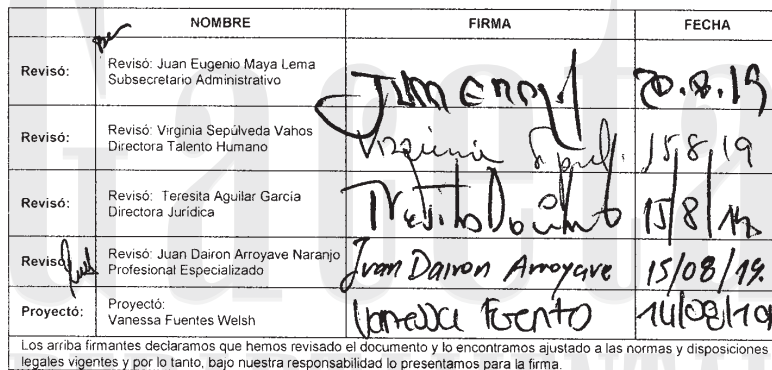 NOMBRE FIRMA FECHA
Revisó: Revisó: Juan Eugenio Maya Lema
Subsecretario Administrativo
20.8.19
Revisó: Revisó: Virginia Sepúlveda Vahos
Directora Talento Humano
Virginia 15/8/19
Revisó: Revisó: Teresita Aguilar García
Directora Jurídica
15/8/
Revisó Revisó: Juan Dairon Arroyave Naranjo
Profesional Especializado
Juan Dairon Arroyave 15/08/19.
Proyectó: Proyectó:
Vanessa Fuentes Welsh
Vanessa 14/08/19
Los arriba firmantes declaramos que hemos revisado el documento y lo encontramos ajustado a las normas y disposiciones
legales vigentes y por lo tanto, bajo nuestra responsabilidad lo presentamos para la firma.